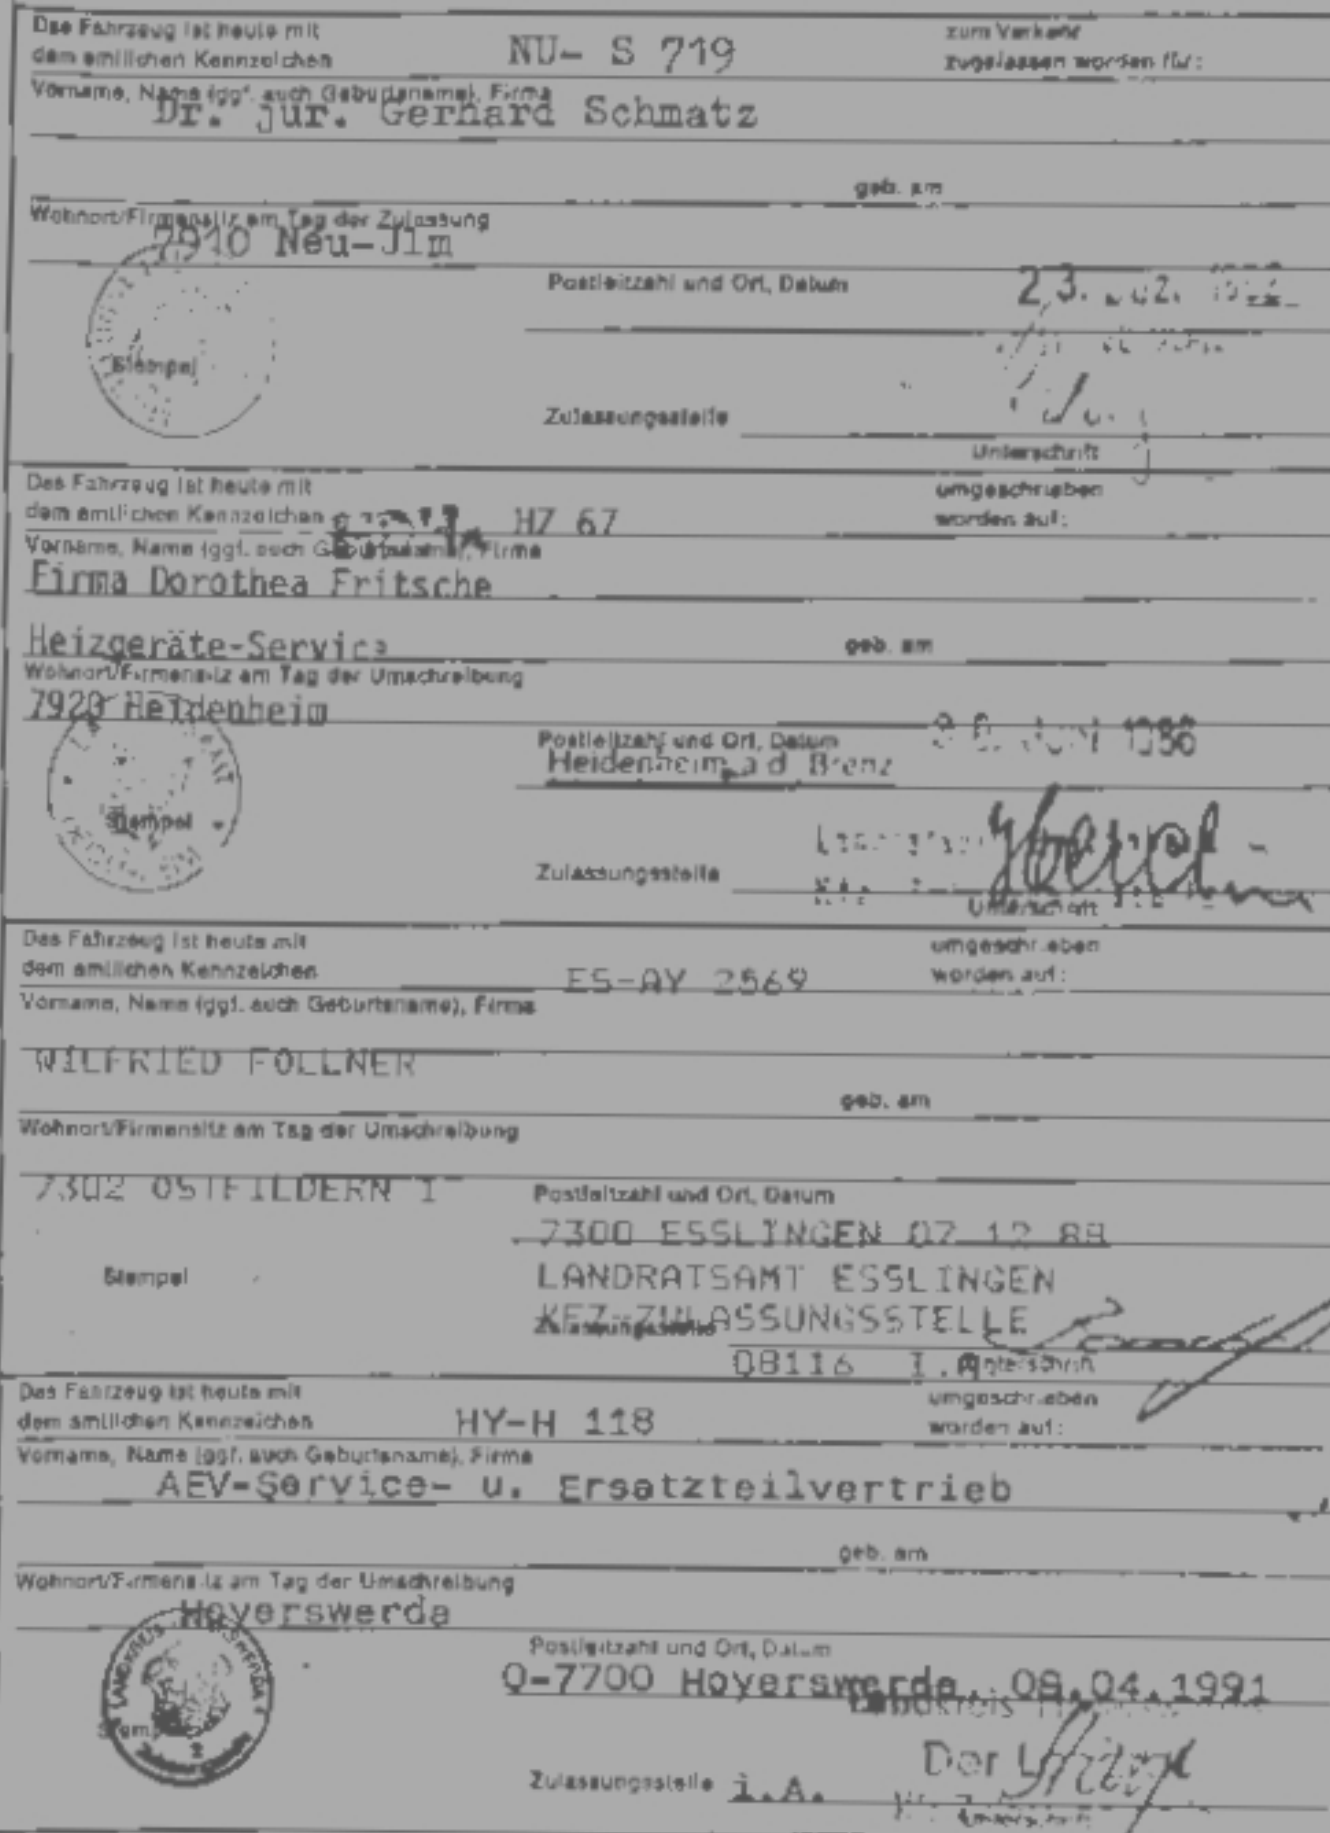 Das Fahrzeug ist heute mit
dem amtlichen Kennzeichen NU- S 719 zum Verkehr zugelassen worden für:
Vorname, Name (ggf. auch Geburtsname), Firma
Dr. jur. Gerhard Schmatz
geb. am
Wohnort/Firmensitz am Tag der Zulassung
7910 Neu-Ulm
Postleitzahl und Ort, Datum 23.
Stempel
Zulassungsstelle
Unterschrift
Das Fahrzeug ist heute mit umgeschrieben
dem amtlichen Kennzeichen HZ 67 worden auf:
Vorname, Name (ggf. auch Geburtsname), Firma
Firma Dorothea Fritsche
Heizgeräte-Service geb. am
Wohnort/Firmensitz am Tag der Umschreibung
7920 Heidenheim
Postleitzahl und Ort, Datum Juni 1986
Heidenheim a d Brenz
Stempel
Zulassungsstelle
Unterschrift
Das Fahrzeug ist heute mit umgeschrieben
dem amtlichen Kennzeichen ES-AY 2569 worden auf:
Vorname, Name (ggf. auch Geburtsname), Firma
WILFRIED FOLLNER
geb. am
Wohnort/Firmensitz am Tag der Umschreibung
7302 OSTFILDERN 1 Postleitzahl und Ort, Datum
7300 ESSLINGEN 07 12 88
Stempel LANDRATSAMT ESSLINGEN
KFZ-ZULASSUNGSSTELLE
Zulassungsstelle
08116 I.A Unterschrift
Das Fahrzeug ist heute mit umgeschrieben
dem amtlichen Kennzeichen HY-H 118 worden auf:
Vorname, Name (ggf. auch Geburtsname), Firma
AEV-Service- u. Ersatzteilvertrieb
geb. am
Wohnort/Firmensitz am Tag der Umschreibung
Hoyerswerda
LANDKREIS HOYERSWERDA
Postleitzahl und Ort, Datum
O-7700 Hoyerswerda, 08.04.1991
Landkreis
Stempel
2
Der
Zulassungsstelle i.A.
Unterschrift